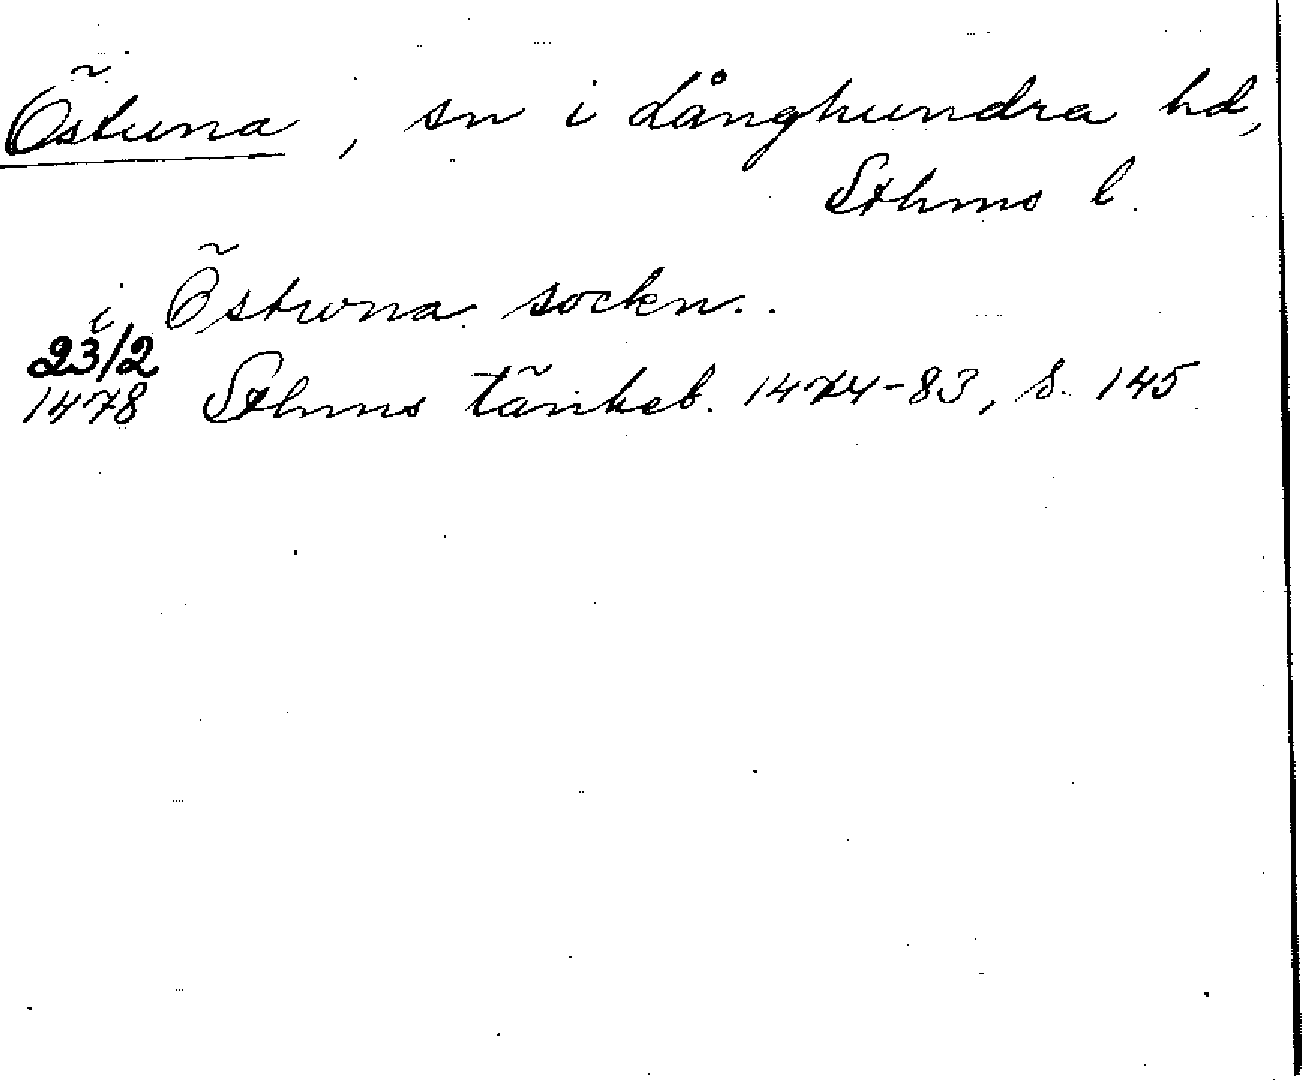 Östuna, sn i Långhundra hd,
Sthms l.
i Östwna sockn..
23/2
1478 Sthms tänkeb. 1474-83, s. 145